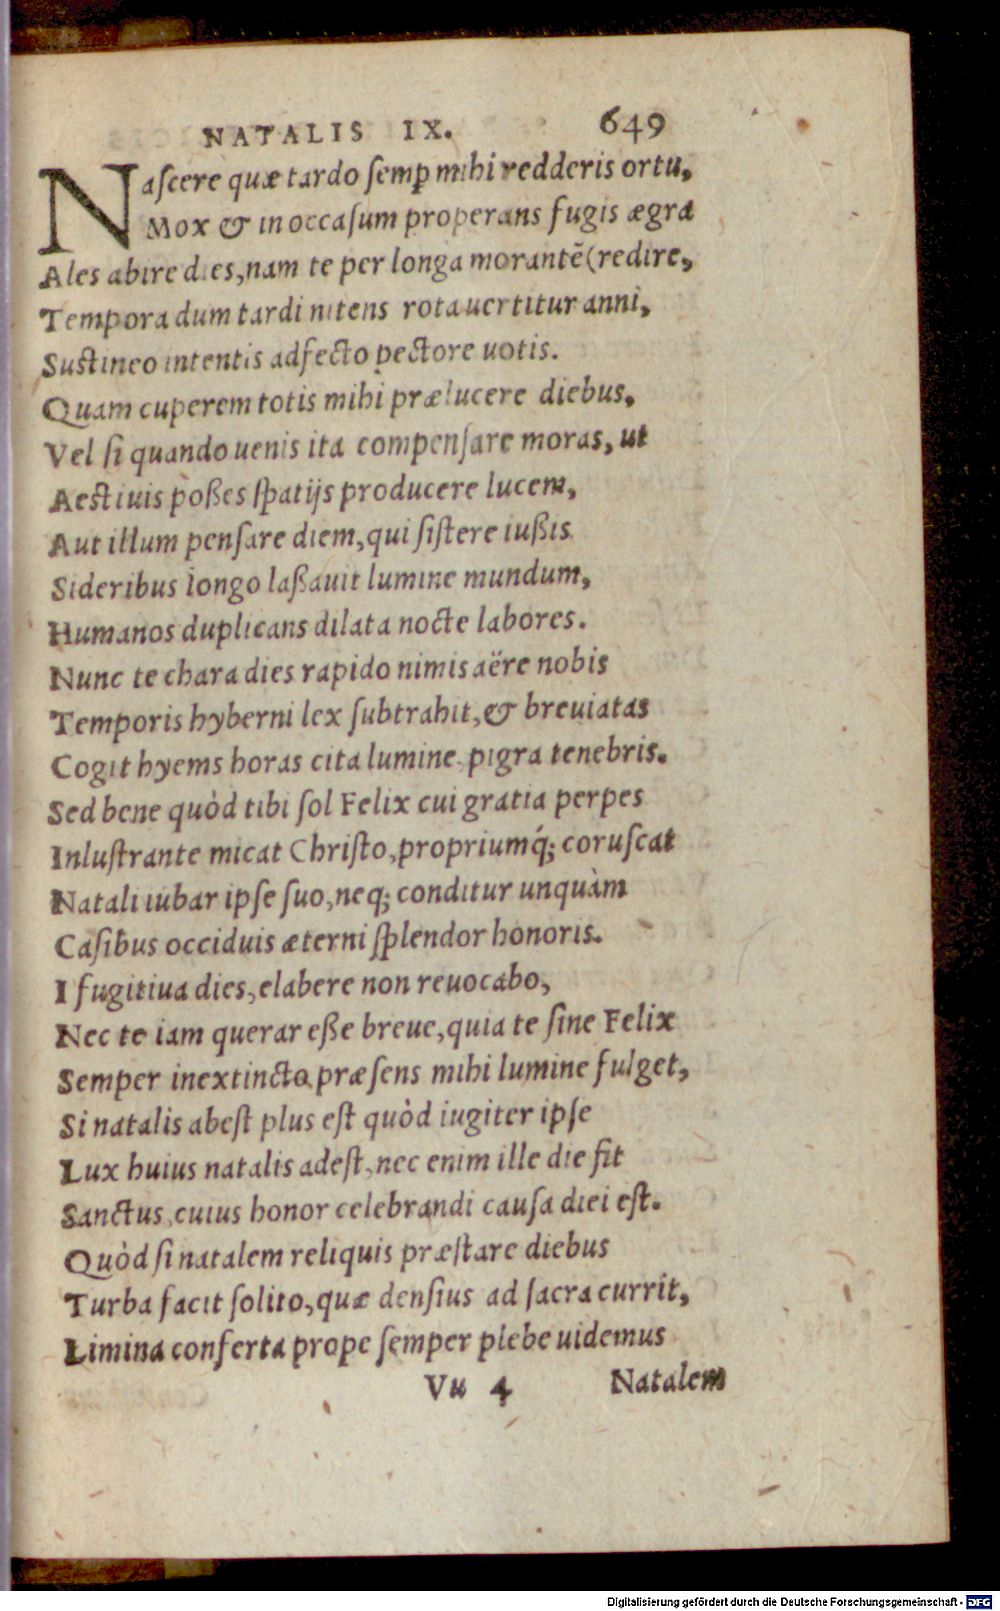 NATALIS IX. 649
Nascere quæ tardo semꝑ mihi redderis ortu,
Mox & in occasum properans fugis ægra
Ales abire dies, nam te per longa morantẽ (redire,
Tempora dum tardi nitens rota uertitur anni,
Sustineo intentis adfecto pectore uotis.
Quam cuperem totis mihi prælucere diebus,
Vel si quando uenis ita compensare moras, ut
Aestiuis poßes spatijs producere lucem,
Aut illum pensare diem, qui sistere iußis
Sideribus longo laßauit lumine mundum,
Humanos duplicans dilata nocte labores.
Nunc te chara dies rapido nimis aëre nobis
Temporis hyberni lex subtrahit, & breuiatas
Cogit hyems horas cita lumine pigra tenebris.
Sed bene quòd tibi sol Felix cui gratia perpes
Inlustrante micat Christo, propriumq́; coruscat
Natali iubar ipse suo, neq; conditur unquàm
Casibus occiduis æterni splendor honoris.
I fugitiua dies, elabere non reuocabo,
Nec te iam querar eße breue, quia te sine Felix
Semper inextincto præsens mihi lumine fulget,
Si natalis abest plus est quòd iugiter ipse
Lux huius natalis adest, nec enim ille die fit
Sanctus, cuius honor celebrandi causa diei est.
Quòd si natalem reliquis præstare diebus
Turba facit solito, quæ densius ad sacra currit,
Limina conferta prope semper plebe uidemus
Vu 4 Natalem
Digitalisierung gefördert durch die Deutsche Forschungsgemeinschaft - DFG